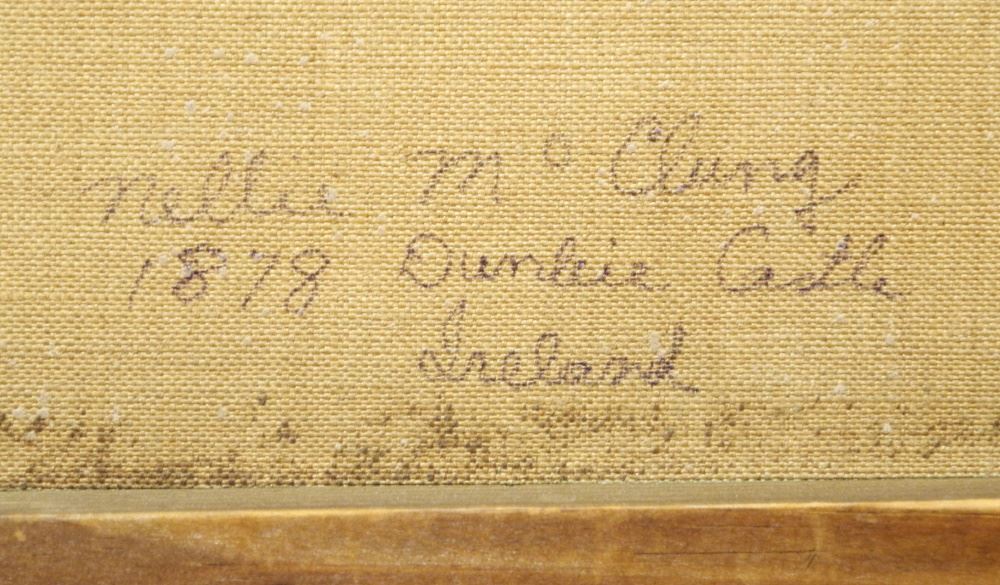 Nellie Mc Clung
1878 Dunkie Castle
Ireland